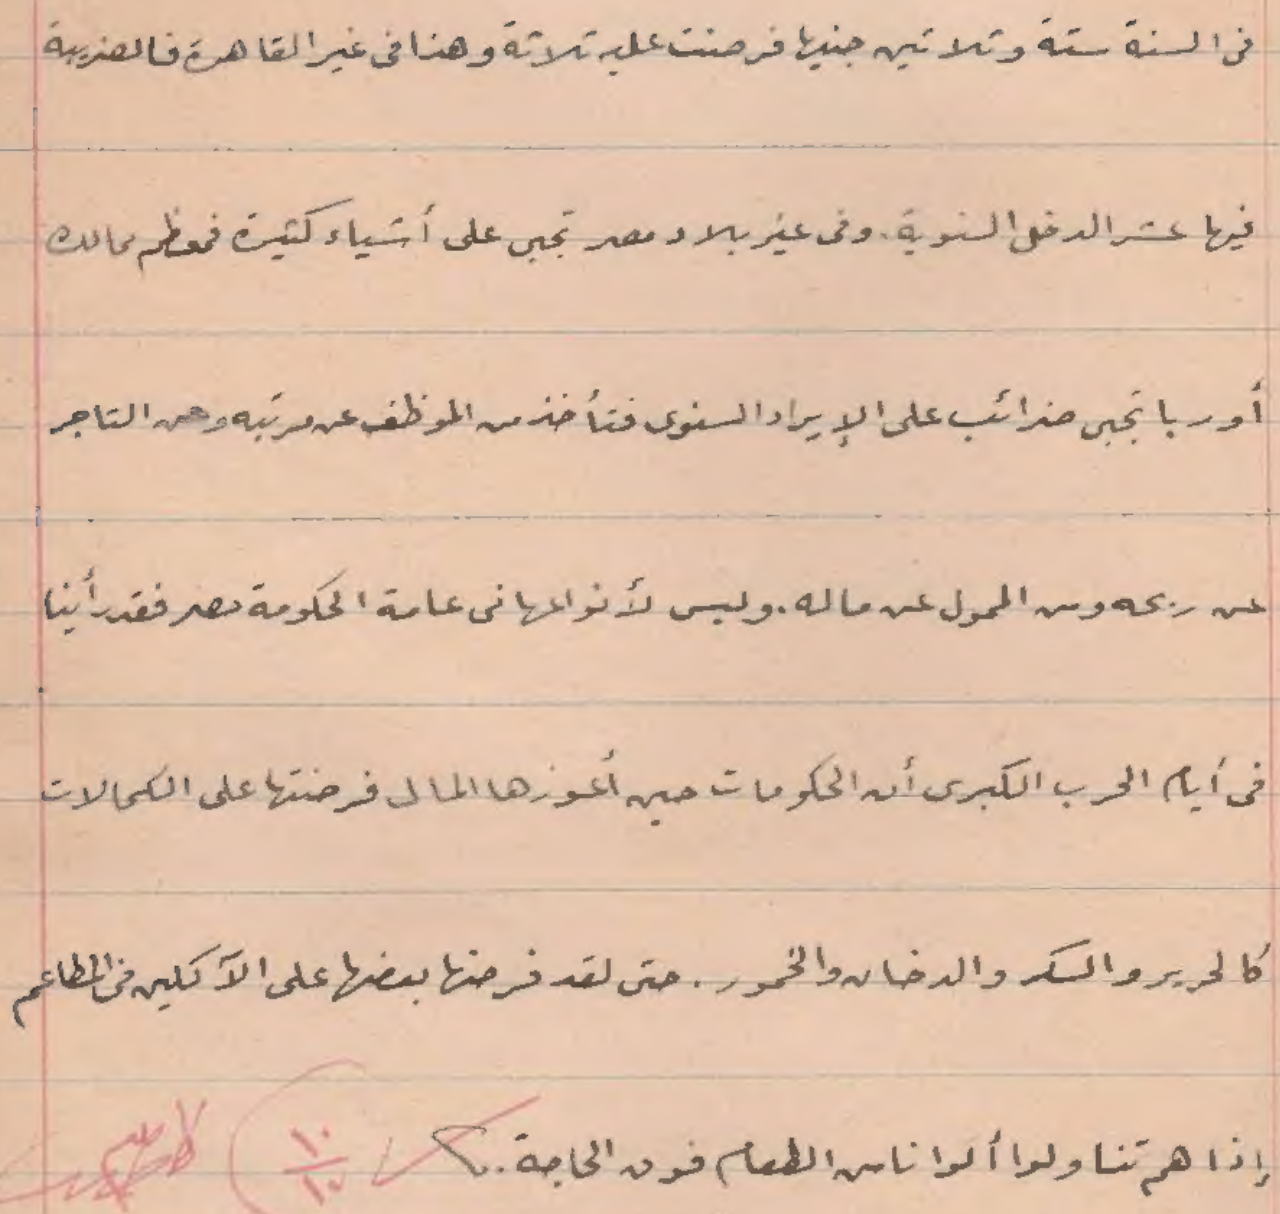 فى السنة ستة وثلاثين جنيها فرضت عليه ثلاثة وهذا فى غير القاهرة فالضريبة
فيها عشر الدخل السنوية. وفى غير بلاد مصر تجبى على أشياء كثيرة فمعظم ممالك
أوربا تجبى ضرائب على الإيراد السنوى فتأخذ من الموظف عن مرتبه ومن التاجر
عن ربحه ومن الممول عن ماله. وليس لأنواعها نهاية عامة الحكومة مصر فقد رأينا
فى أيام الحرب الكبرى أن الحكومات حين أعوزها المال فرضتها على الكمالات
كالحرير والسكر والدخان والخمور. حتى لقد فرضها بعضها على الآكلين فى المطاعم
إذا هم تناولوا ألوانا من الطعام فوق الحاجة.
١٠
١٠